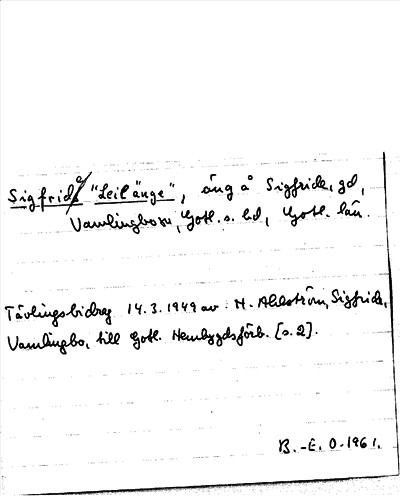 Sigfride "Leilänge", äng å Sigfride, gd,
Vamlingbo sn, Gotl. s. hd, Gotl. län.
Tävlingsbidrag 14.3.1949 av M. Ahlström, Sigfride,
Vamlingbo, till Gotl. Hembygdsförb. [s. 2].
B.-E. O. 1961.